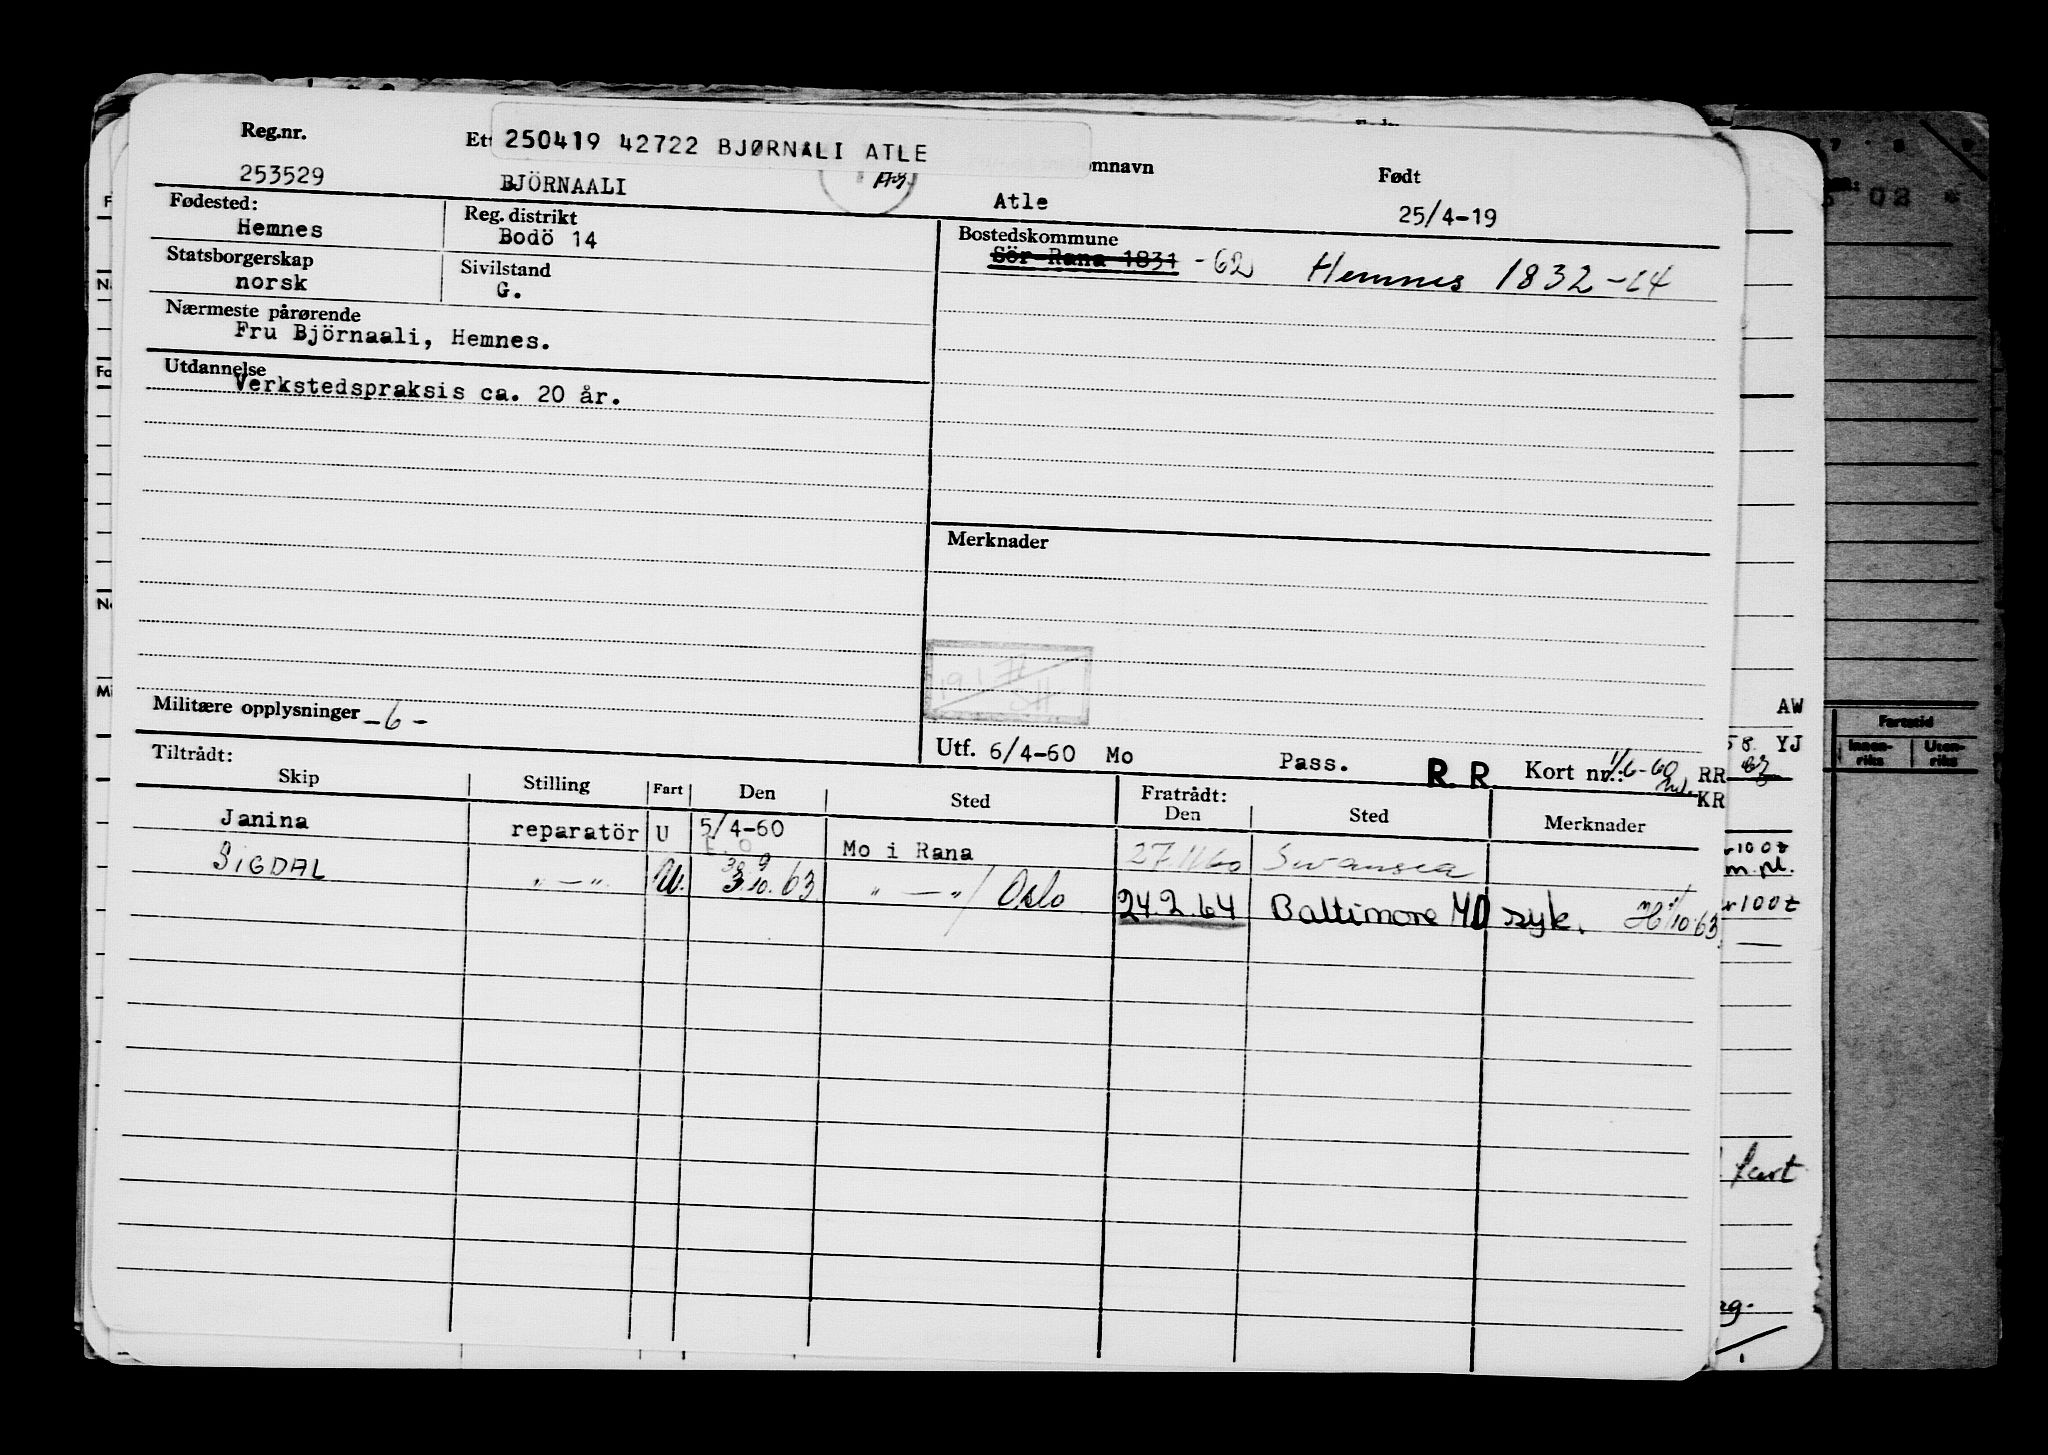 Reg.nr. 250419 42722 BJØRNALI ATLE Født
253529 BJÖRNAALI Atle 25/4-19
Fødested: Reg. distrikt Bostedskommune
Hemnes Bodö 14 Sör-Rana 1831 -62 Hemnes 1832
Statsborgerskap Sivilstand
norsk G.
Nærmeste pårørende
Fru Björnaali, Hemnes.
Utdannelse
Verkstedspraksis ca. 20 år.
Merknader
Militære opplysninger -6-
Utf. 6/4-60 Mo Pass. R. R. Kort nr.: 1/6-60 RR
KR
Tiltrådt: Fratrådt:
Skip Stilling Fart Den Sted Den Sted Merknader
Janina reparatör U 5/4-60 Mo i Rana 27.11.60 Swansea
SIGDAL " — " U. " — " / Oslo 24.2.64 Baltimore MD syk.
AW
YJ
Fartstid
Innen-riks Uten-riks
fart